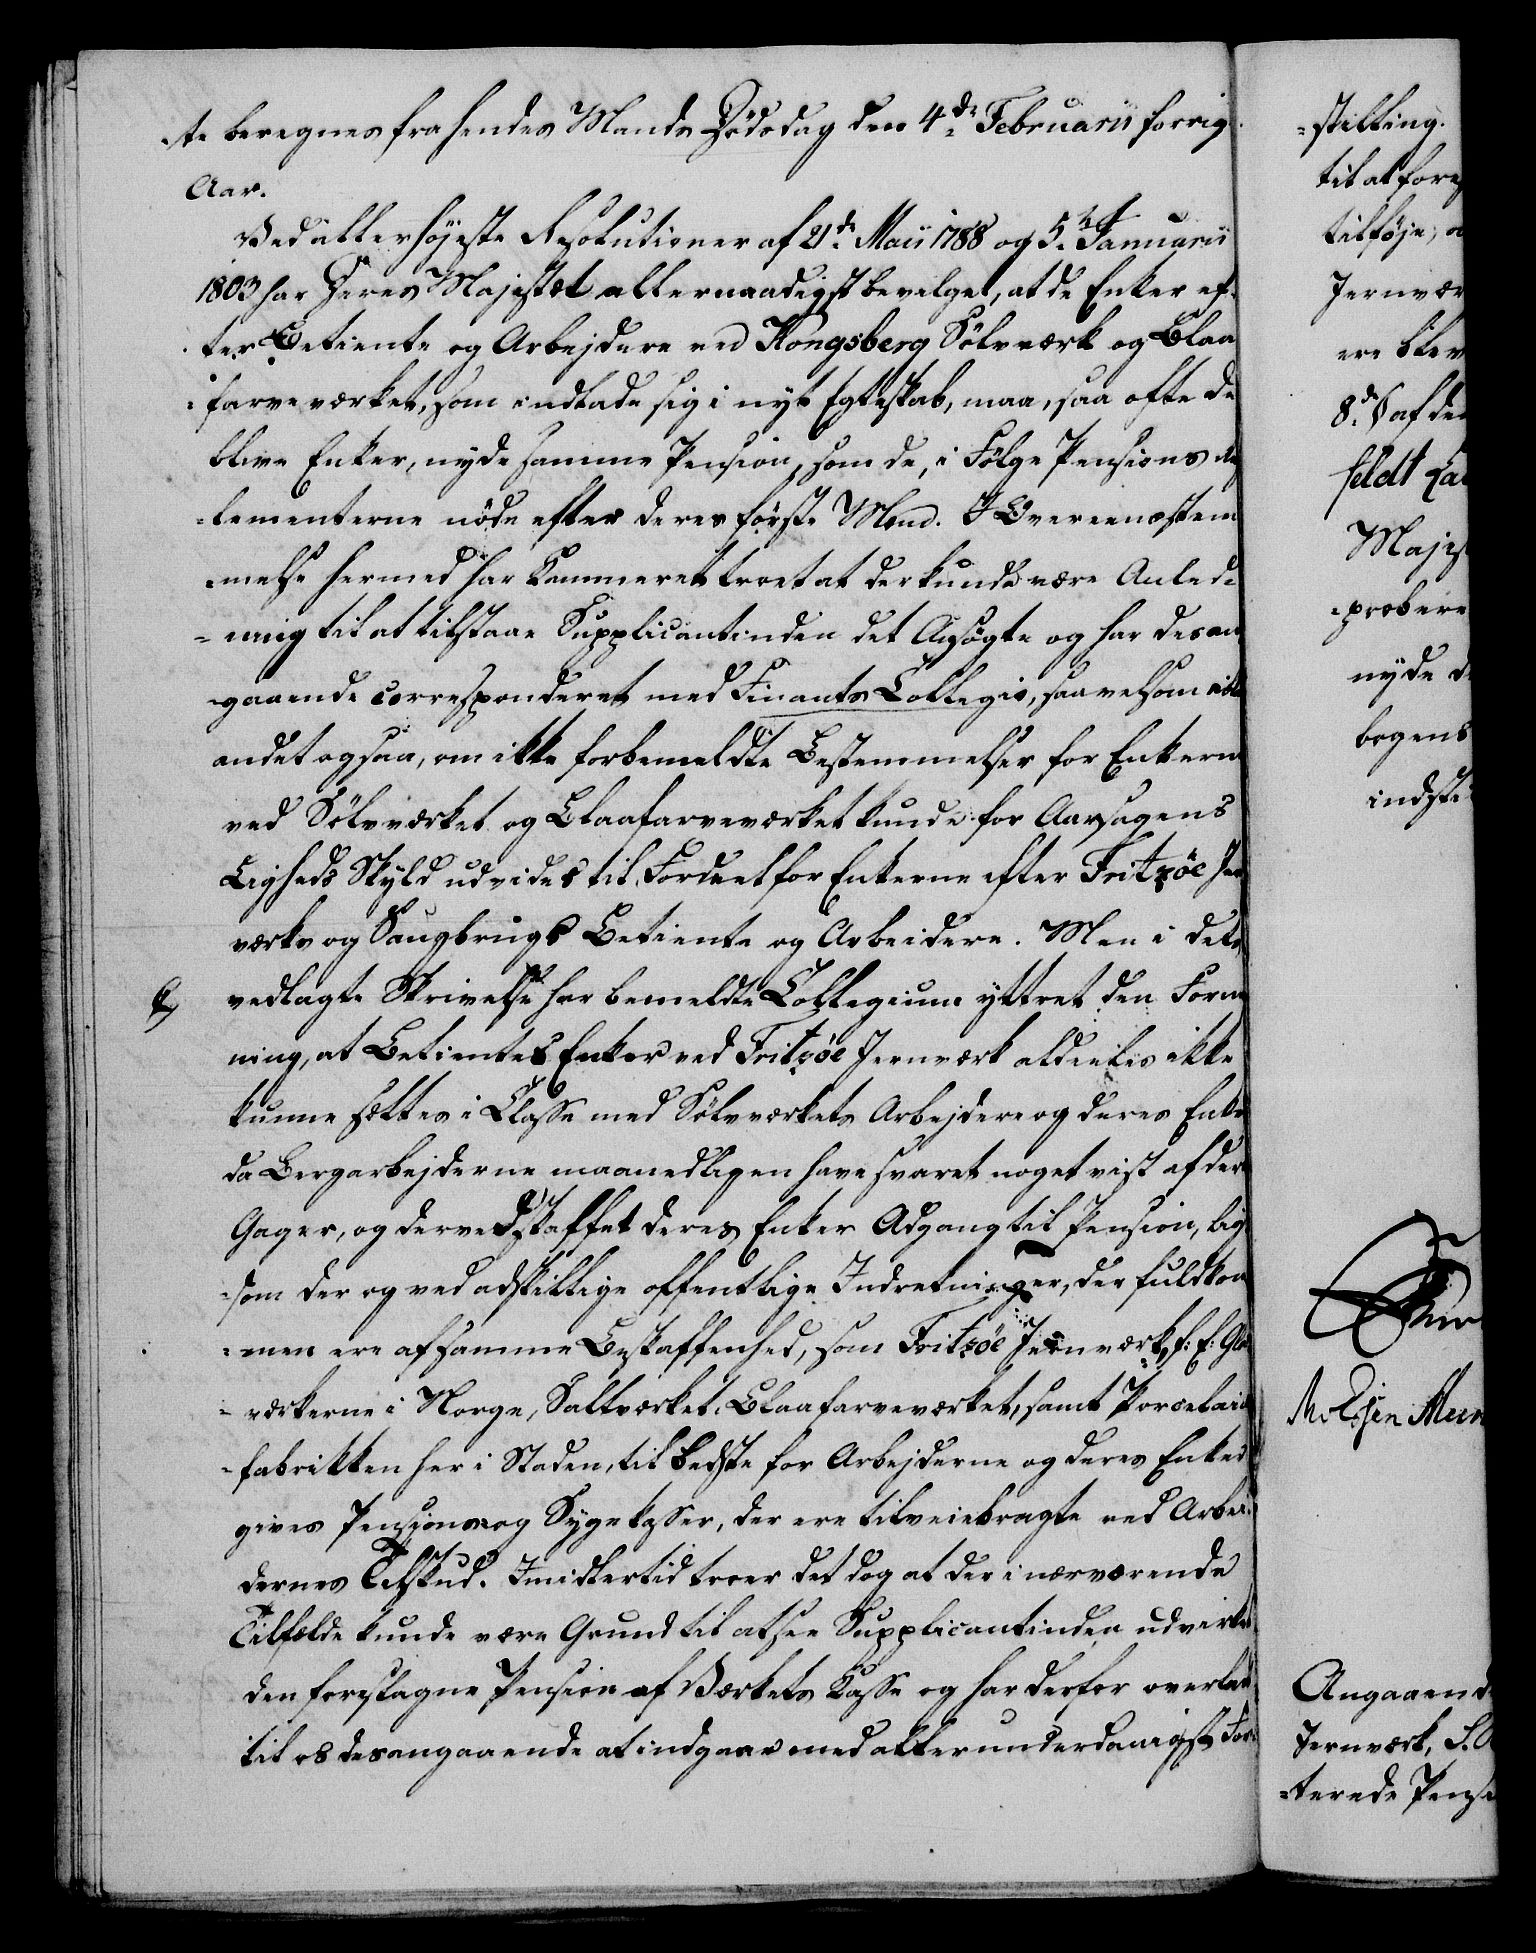 -te beregnes fra hendes Mands Dødsdag den 4de Februarii forrig
Aar.
Ved allerhøjeste Resolutioner af 21de Maii 1788 og 5te Januarii
1803 har Deres Majestæt allernaadigst bevilget, at de Enker ef-
ter Betiente og Arbejdere ved Kongsberg Sølvværk og Blaa
-farveværket, som indlade sig i nyt Egteskab, maa, saa ofte de
blive Enker, nyde samme Pension, som de, i Følge Pensions Reg
-lementerne nøde efter deres første Mænd. I Overeensstem
-melse hermed har Kammeret troet at der kunde være Anled-
-ning til at tilstaae Supplicantinden det Ansøgte og har desan
-gaaende corresponderet med Finants Collegio, saavelsom iblt
andet ogsaa, om ikke forbemeldte Bestemmelser for Enkerne
ved Sølvværket og Blaafarveværket kunde for Aarsagens
Ligheds Skyld udvides til Fordeel for Enkerne efter Fritzöe Jern
værks og Saugbrugs Betiente og Arbeidere. Men i dets
vedlagte Skrivelse har bemeldte Collegium yttret den Form
ning, at Betientes Enker ved Fritzöe Jernværk aldeeles ikke
kunne sættes i Classe med Sølvværkets Arbejdere og deres Enker
da Bergarbejderne maanedligen have svaret noget vist af deres
Gager, og derved skaffet deres Enker Adgang til Pension, lige
-som der og ved adskillige offentlige Indretninger, der fuldkom
-men ere af samme Beskaffenhed, som Fritzöe Jernværk, f: E: Glas
-værkerne i Norge, Saltværket, Blaafarveværket, samt Porcelains
-fabrikken her i Staden, til bedste for Arbejderne og deres Enker
gives Pensions og Sygekasser, der ere tilveiebragte ved Arbei-
dernes Tilskud. Imidlertid troer det dog at der i nærværende
Tilfælde kunde være Grund til at see Supplicantinden udvirket
den foreslagne Pension af Værkets Kasse og har derfor overladt
til os desangaaende at indgaae med allerunderdanigst Fore-
-stilling.
til at fore
tilføje, o
Jernvær
ere blev
8de § af de
feldt La
Majes
-probere
nyde d
bogens
indsti
Angaaend
Jernværk,
-terede Pens